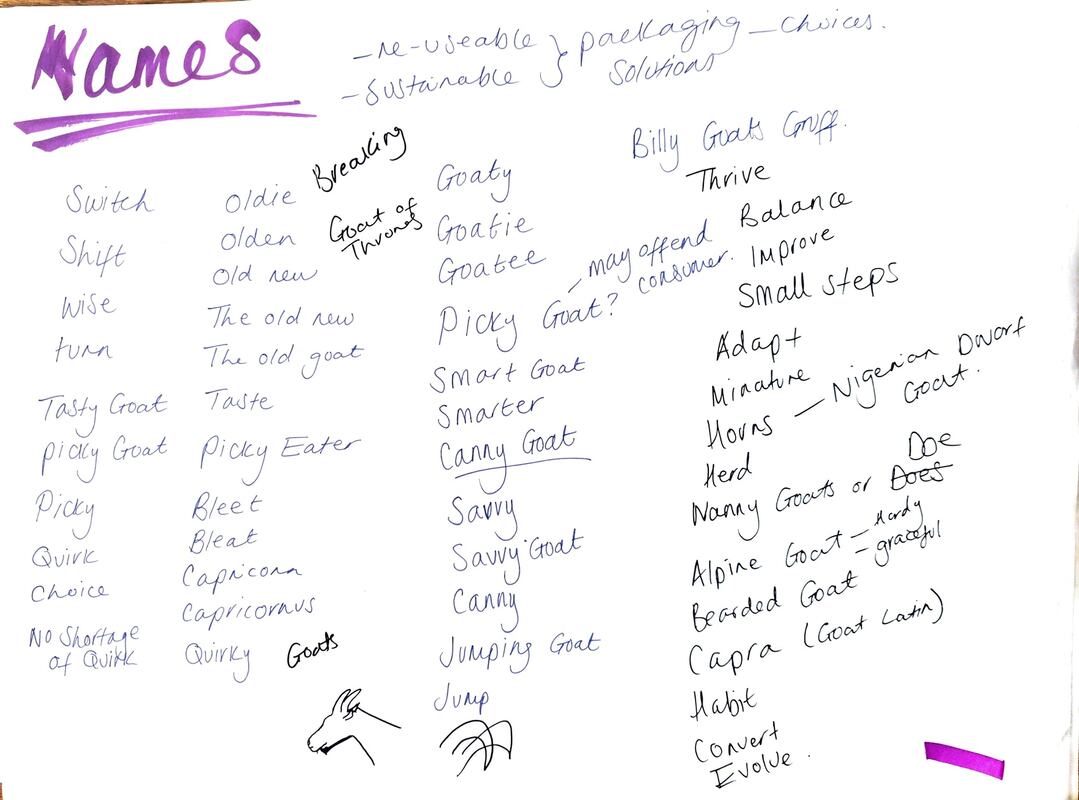 Names
- re-useable } packaging - choices.
- sustainable } solutions
Switch
Shift
Wise
turn
Tasty Goat
Picky Goat
Picky
Quirk
Choice
No Shortage
of Quirk
Oldie
Olden
Old new
The old new
The old goat
Taste
Picky Eater
Bleet
Bleat
Capricorn
Capricornus
Quirky Goats
Breaking
Goat of
Thrones
Goaty
Goatie
Goatee
Picky Goat? - may offend
consumer.
Smart Goat
Smarter
Canny Goat
Savvy
Savvy Goat
Canny
Jumping Goat
Jump
Billy Goats Gruff.
Thrive
Balance
Improve
Small steps
Adapt
Minature
Horns - Nigerian Dwarf
Goat.
Herd
Doe
Nanny Goats or Does
Alpine Goat - Hardy
- graceful
Bearded Goat
Capra (Goat Latin)
Habit
Convert
Evolve.